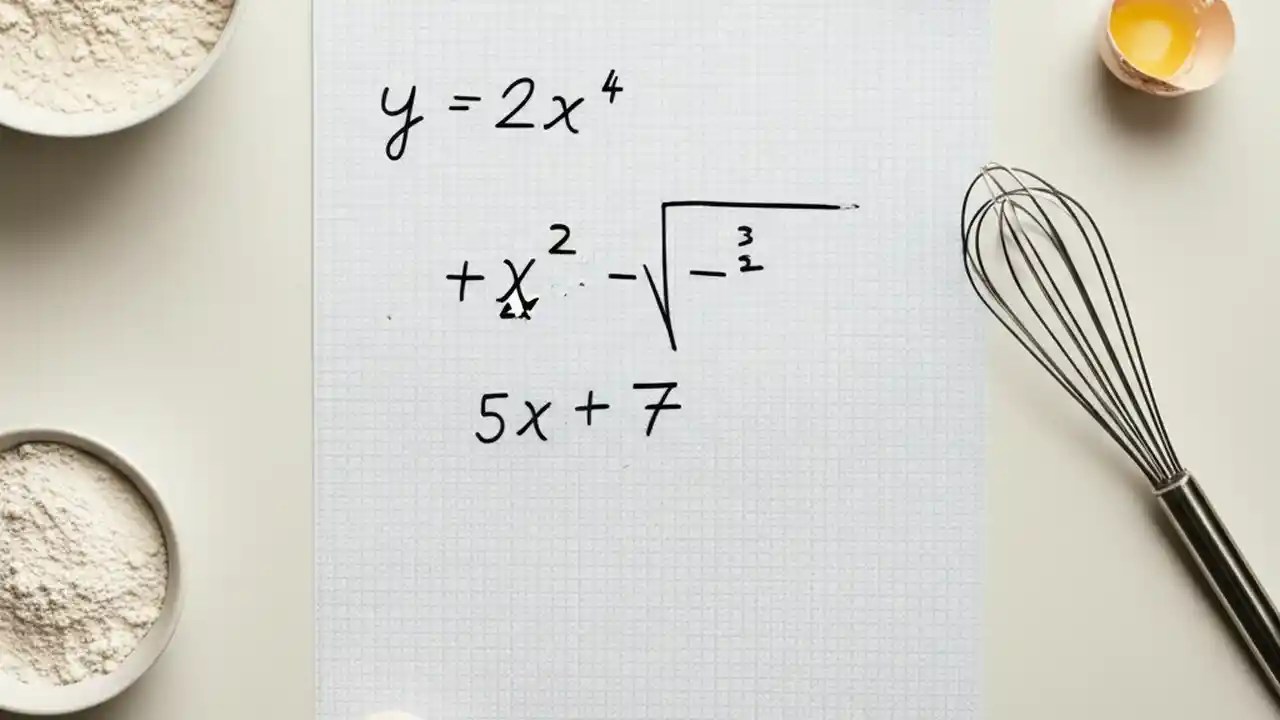 y = 2x⁴
+ x² - √(- 3/2)
5x + 7